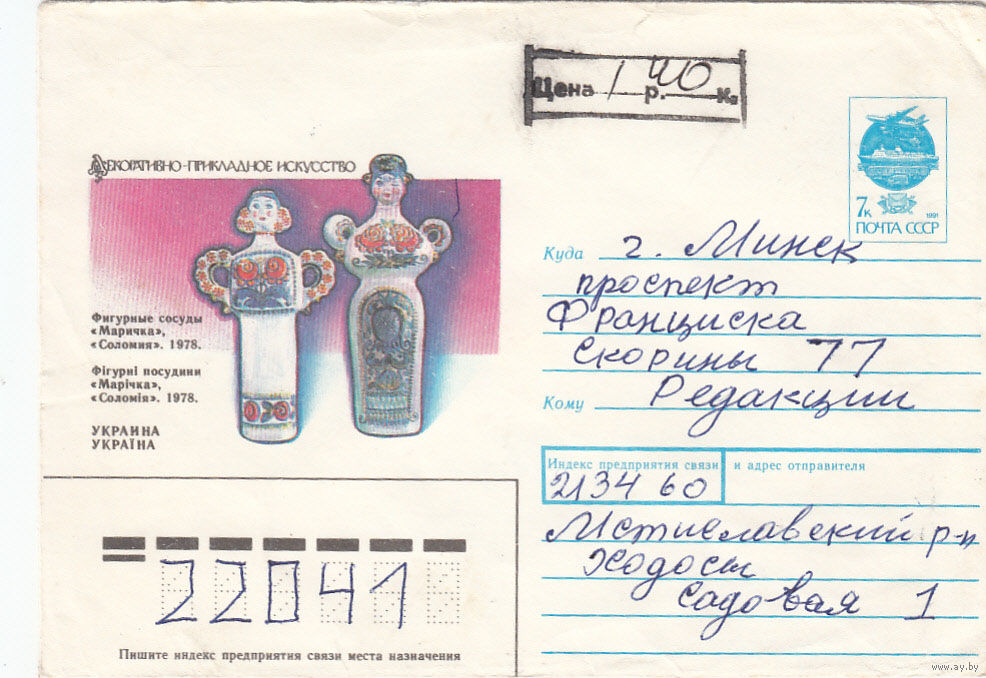 Цена 1 р. 40 к.
7к
1991
ПОЧТА СССР
ДЕКОРАТИВНО-ПРИКЛАДНОЕ ИСКУССТВО
Фигурные сосуды
«Маричка»,
«Соломия». 1978.
Фігурні посудини
«Марічка»,
«Соломія». 1978.
УКРАИНА
УКРАЇНА
Куда г. Минск
проспект
Франциска
Скорины 77
Кому Редакции
Индекс предприятия связи и адрес отправителя
213460
Мстиславский р-н
Ходосы
Садовая 1
22041
Пишите индекс предприятия связи места назначения
www.ay.by